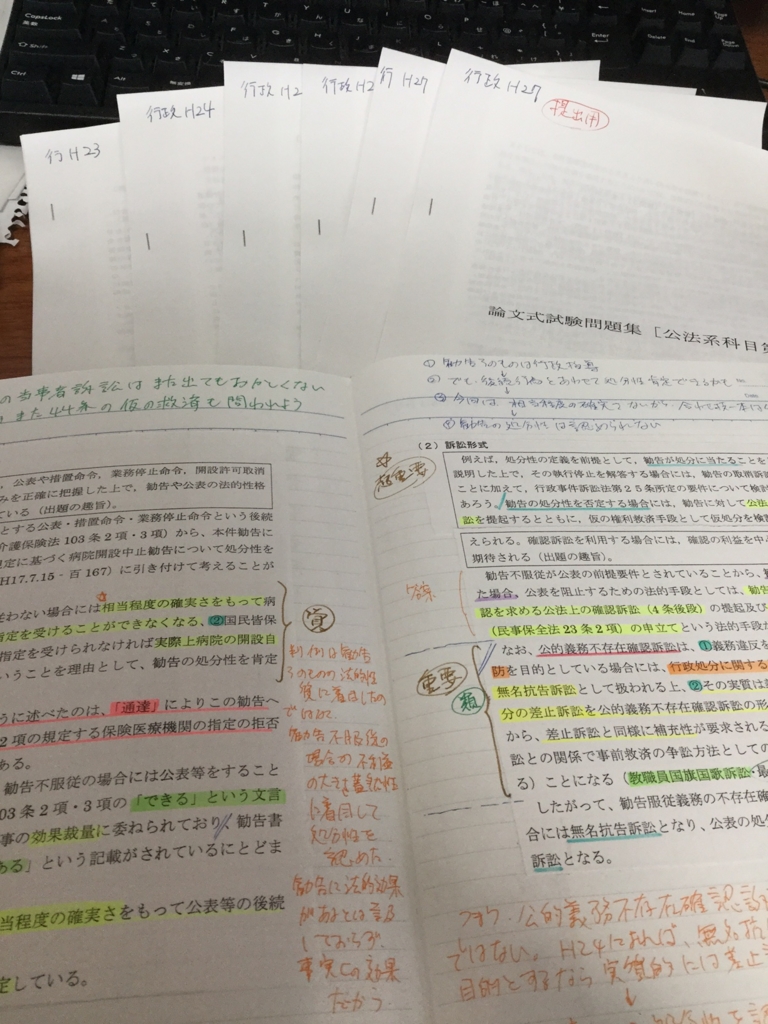 CapsLock
英数
Shift
Ctrl
Alt
Enter
行 H23
行政 H24
行政 H2
行政 H2
行 H27
行政 H27
提出用
論文式試験問題集［公法系科目
の当事者訴訟はまた出てもおかしくない
また44条の仮の救済も問われよう
、公表や措置命令、業務停止命令、開設許可取消
みを正確に把握した上で、勧告や公表の法的性格
ている（出題の趣旨）。
とする公表・措置命令・業務停止命令という後続
介護保険法 103 条 2 項・3 項）から、本件勧告に
規定に基づく病院開設中止勧告について処分性を
H17.7.15‐百 167）に引き付けて考えることが
従わない場合には相当程度の確実さをもって病
指定を受けることができなくなる、②国民皆保
指定を受けられなければ実際上病院の開設自
いうことを理由として、勧告の処分性を肯定
うに述べたのは、「通達」によりこの勧告へ
2 項の規定する保険医療機関の指定の拒否
ある。
勧告不服従の場合には公表等をすること
03 条 2 項・3 項の「できる」という文言
事の効果裁量に委ねられており、勧告書
ある」という記載がされているにとどま
当程度の確実さをもって公表等の後続
定している。
判例は勧告
そのものの法的性
質に着目したの
ではなく
勧告不服従の
場合の不利益
の大きさ、蓋然性
に着目して
処分性を
認めた。
勧告に法的効果
があるとは言及
しておらず
事実上の効果
だろう
① 勧告そのものは行政指導
② でも、後続行為とあわせて処分性肯定できるかも
③ 今回は、相当程度の確実さ
④ 勧告の処分性は認められない
（2）訴訟形式
超重要
例えば、処分性の定義を前提として、勧告が処分に当たることを
説明した上で、その執行停止を解答する場合には、勧告の取消訴
ことに加えて、行政事件訴訟法第２５条所定の要件について検
あろう。勧告の処分性を否定する場合には、勧告に対して公法
訟を提起するとともに、仮の権利救済手段として仮処分を検
えられる。確認訴訟を利用する場合には、確認の利益を中
期待される（出題の趣旨）。
勧告不服従が公表の前提要件とされていることから、
た場合、公表を阻止するための法的手段としては、勧告
認を求める公法上の確認訴訟（4 条後段）の提起及び
（民事保全法 23 条 2 項）の申立てという法的手段が
なお、公的義務不存在確認訴訟は、①義務違反を
防を目的としている場合には、行政処分に関する
無名抗告訴訟として扱われる上、②その実質は
分の差止訴訟を公的義務不存在確認訴訟の形
から、差止訴訟と同様に補充性が要求される
訟との関係で事前救済の争訟方法としての
る）ことになる（教職員国旗国歌訴訟・最
したがって、勧告服従義務の不存在確
合には無名抗告訴訟となり、公表の処分
訴訟となる。
重要
公的義務不存在確認訴
ではない。H24によれば、無名抗
目的とするなら実質的には差止